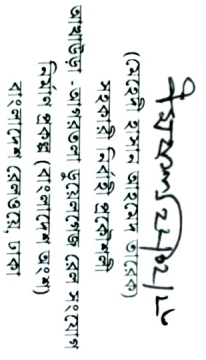 (মেহেদি হাসান আহমেদ তারেক)
সহকারি নির্বাহি প্রকৌশলী
আখাউড়া - আগরতলা ডুয়েলগেজ রেল সংযোগ
নির্মাণ প্রকল্প (বাংলাদেশ অংশ)
বাংলাদেশ রেলওয়ে, ঢাকা